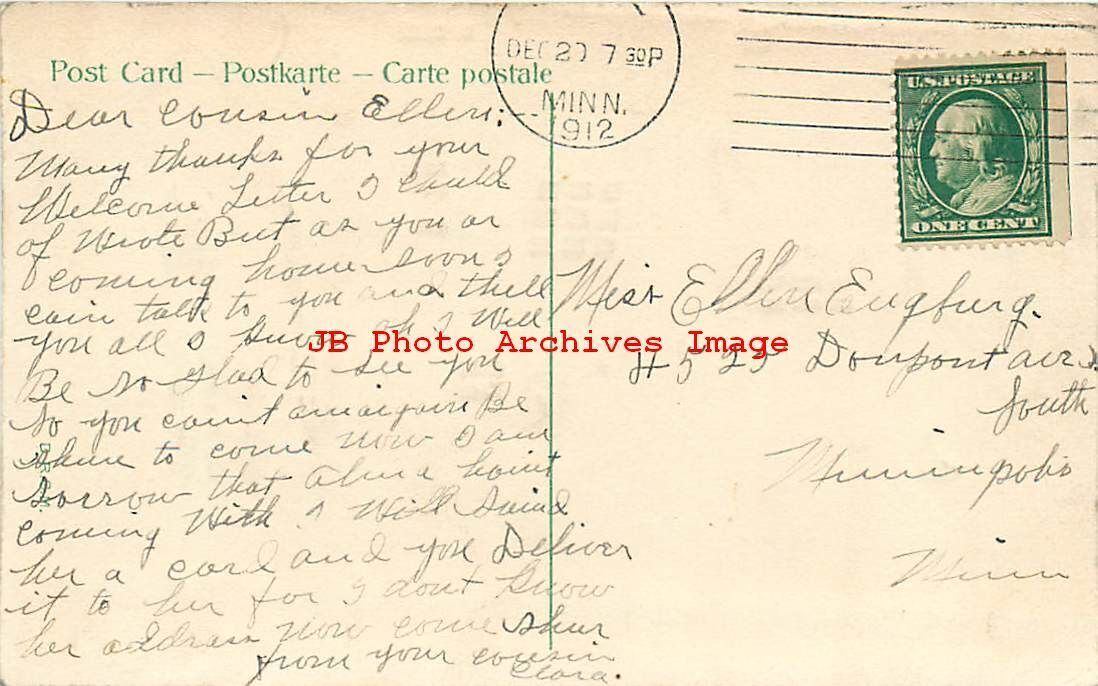 DEC 20 7 30P
MINN.
1912
U.S. POSTAGE
ONE CENT
Post Card – Postkarte – Carte postale
Dear Cousin Ellen;
Many thanks for your
Welcome Letter I Could
of Wrote But as you ar
coming home soon I
cain talk to you and thell
you all I know oh I Will
Be so glad to see you
so you cain't amaigain Be
shure to come now I am
sorrow that Alma haint
coming With I Will Saind
her a card and you Deliver
it to her for I dont know
her addrass now come shur
from your cousin
Clara.
Miss Ellen Engburg.
4525 Doupont ave
South
Minnipolis
Minn
JB Photo Archives Image